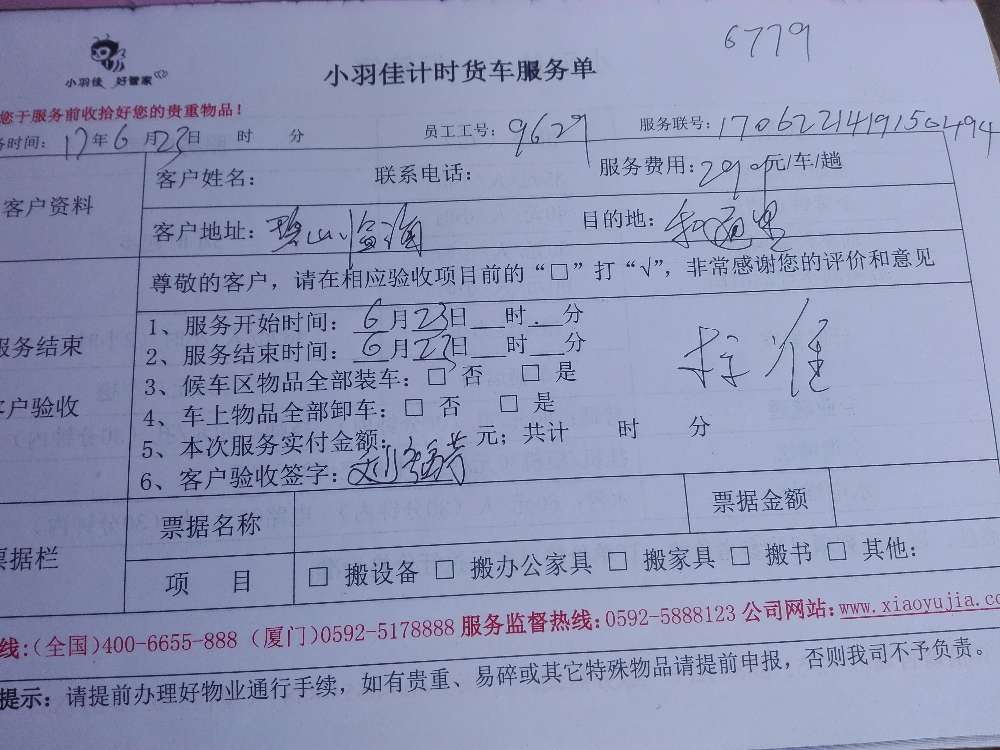 6779
小羽佳 好管家
小羽佳计时货车服务单
您于服务前收拾好您的贵重物品!
务时间: 17年6月23日 时 分 员工工号: 9629 服务联号: 170622141915
客户资料
客户姓名: 联系电话: 服务费用: 元/车/趟
客户地址: 碧山临海 目的地:
尊敬的客户,请在相应验收项目前的“□”打“√”,非常感谢您的评价和意见
服务结束
客户验收
1、服务开始时间: 6月23日 时 分
2、服务结束时间: 6月23日 时 分
3、候车区物品全部装车: □ 否 □ 是
4、车上物品全部卸车: □ 否 □ 是
5、本次服务实付金额: 元; 共计 时 分
6、客户验收签字:
票据栏
票据名称 票据金额
项 目 □ 搬设备 □ 搬办公家具 □ 搬家具 □ 搬书 □ 其他:
线:(全国)400-6655-888 (厦门)0592-5178888 服务监督热线:0592-5888123 公司网站:www.xiaoyujia.co
提示: 请提前办理好物业通行手续,如有贵重、易碎或其它特殊物品请提前申报,否则我司不予负责。